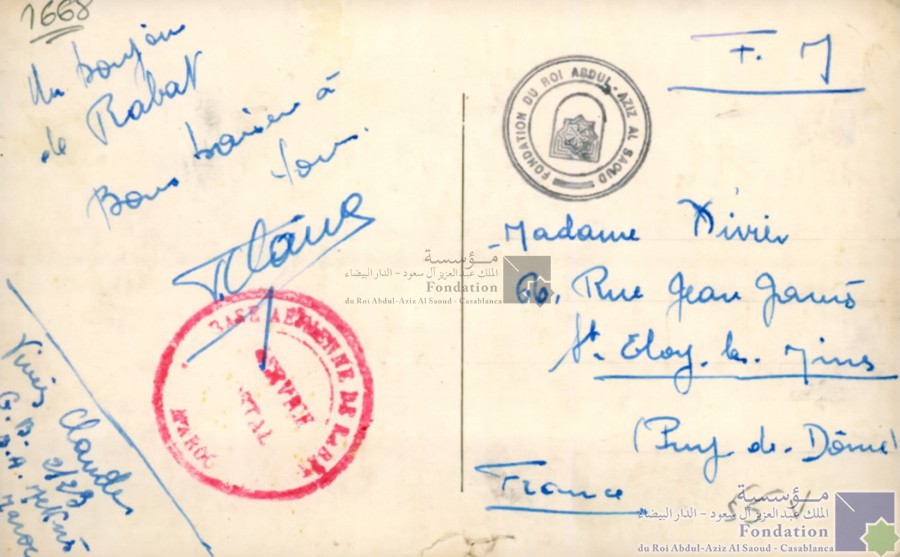 1668
Un bonjour
de Rabat
Bons baisers à
tous.
F. M
FONDATION DU ROI ABDUL-AZIZ AL SAOUD
Madame Vivier
66, Rue Jean Jaurès
St. Eloy. les. Mines
(Puy. de. Dôme)
France
BASE AERIENNE DE RABAT
MAROC
Vivier Claude
G. B. 2/23
B. A. Meknès
Maroc
مؤسسة
الملك عبد العزيز آل سعود - الدار البيضاء
Foundation
du Roi Abdul-Aziz Al Saoud - Casablanca
مؤسسة
الملك عبد العزيز آل سعود - الدار البيضاء
Foundation
du Roi Abdul-Aziz Al Saoud - Casablanca